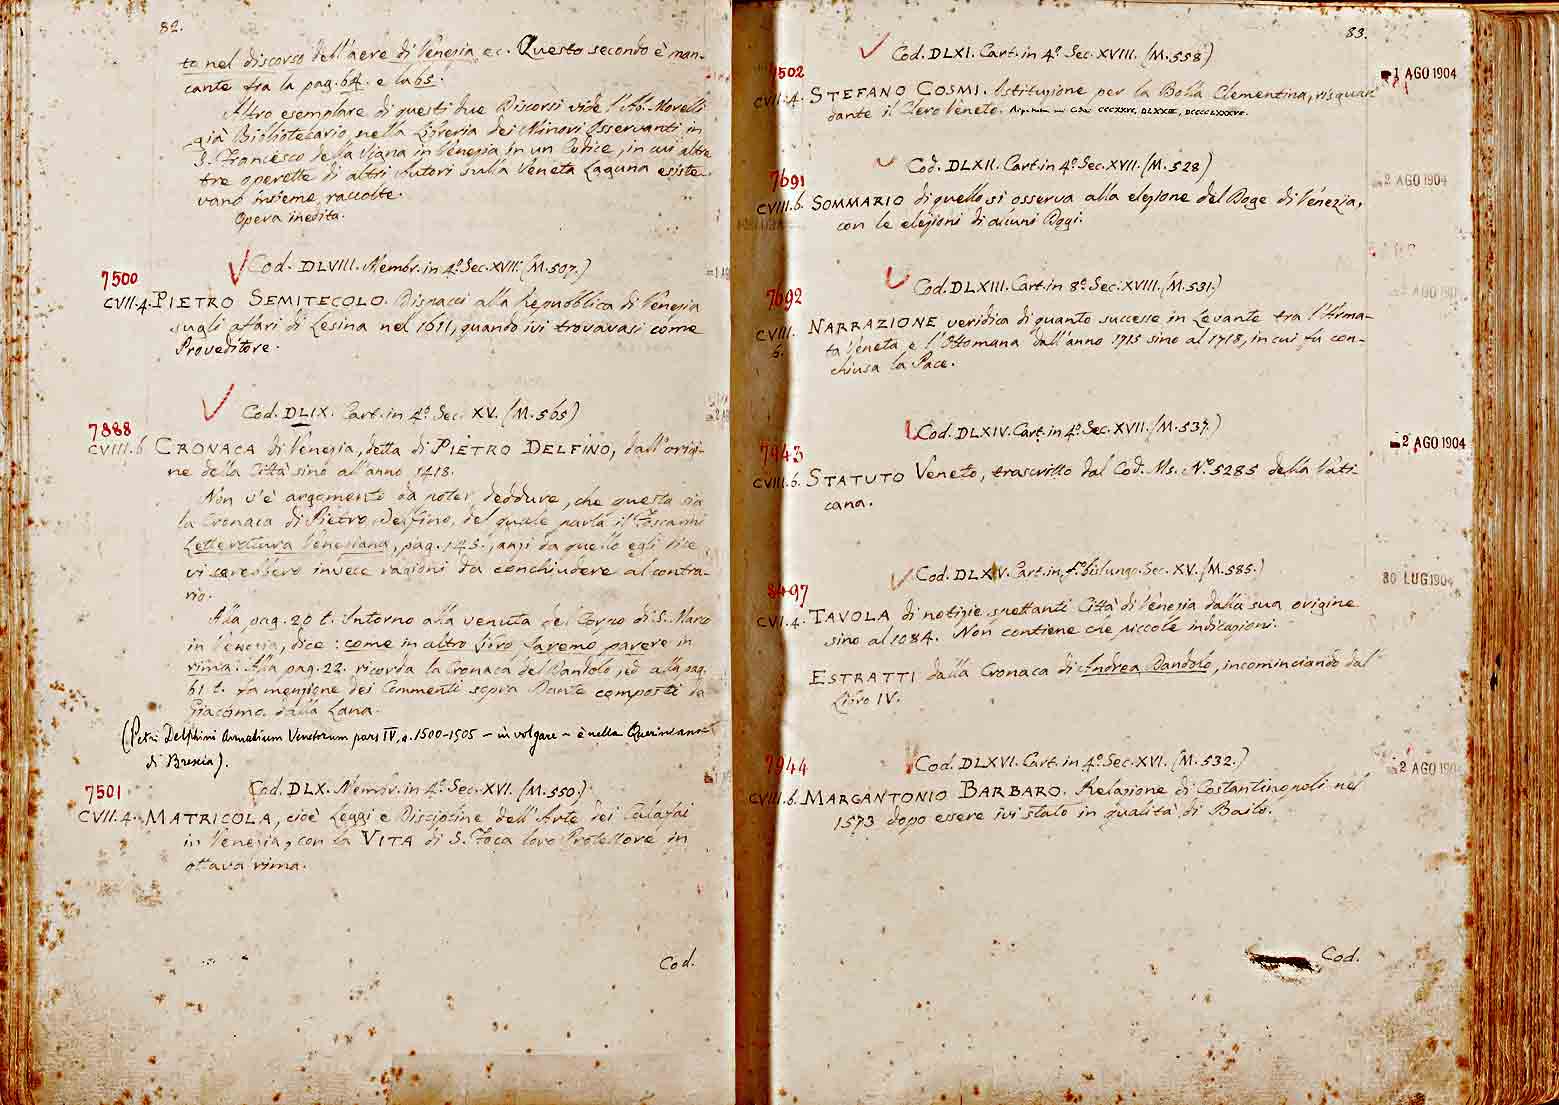 82.
to nel discorso dell'aere di Venezia ec. Questo secondo è man-
cante tra la pag. 64. e la 65.
Altro esemplare di questi due Discorsi vide l'Ab. Morelli
già Bibliotecario nella Libreria dei Minori Osservanti in
S. Francesco della Vigna in Venezia in un Codice, in cui altre
tre operette di altri Autori sulla Veneta Laguna esiste-
vano insieme raccolte.
Opera inedita.
Cod. DLVIII. Membr. in 4º. Sec. XVII. (M. 507.)
7500
CVII.4. PIETRO SEMITECOLO. Dispacci alla Repubblica di Venezia
sugli affari di Lesina nel 1611, quando ivi trovavasi come
Proveditore.
Cod. DLIX. Cart. in 4º. Sec. XV. (M. 565)
7888
CVIII.6 CRONACA di Venezia, detta di PIETRO DELFINO, dall'origi-
ne della Città sino all'anno 1418.
Non v'è argomento da poter deddure, che questa sia
la Cronaca di Pietro Delfino, del quale parla il Foscarini
Letteratura Veneziana, pag. 145., anzi da quello egli dice
vi sarebbero invece ragioni da conchiudere al contra-
rio.
Alla pag. 20 t. Intorno alla venuta del Corpo di S. Marco
in Venezia, dice: come in altro libro faremo parere in
rima. Alla pag. 22. ricorda la Cronaca del Dandolo, ed alla pag.
61 t. fa menzione dei Commenti sopra Dante composti da
Giacomo dalla Lana.
(Petri Delphini Annalium Venetorum pars IV, a. 1500-1505 - in volgare - è nella Queriniana
di Brescia).
Cod. DLX. Membr. in 4º. Sec. XVI. (M. 550.)
7501
CVII.4. MATRICOLA, cioè Leggi e Discipline dell'Arte dei Calafai
in Venezia, con la VITA di S. Foca loro Protettore in
ottava rima.
Cod.
83.
Cod. DLXI. Cart. in 4º. Sec. XVIII. (M. 558)
7502
1 AGO 1904
CVII.4. STEFANO COSMI. Istituzione per la Bolla Clementina, risguar
dante il Clero Veneto.
Cod. DLXII. Cart. in 4º. Sec. XVII. (M. 528)
7691
2 AGO 1904
CVIII.6. SOMMARIO di quello si osserva alla elezione del Doge di Venezia,
con le elezioni di alcuni Dogi.
Cod. DLXIII. Cart. in 8º. Sec. XVIII. (M. 531.)
7692
CVIII.
6.
NARRAZIONE veridica di quanto successe in Levante tra l'Arma-
ta Veneta e l'Ottomana dall'anno 1715 sino al 1718, in cui fu con-
chiusa la Pace.
Cod. DLXIV. Cart. in 4º. Sec. XVII. (M. 537.)
7943
2 AGO 1904
CVIII.6. STATUTO Veneto, trascritto dal Cod. Ms. Nº. 5285 della Vati
cana.
Cod. DLXV. Cart. in fº. bislungo. Sec. XV. (M. 585.)
8497
30 LUG 1904
CVI.4. TAVOLA di notizie spettanti Città di Venezia dalla sua origine
sino al 1084. Non contiene che piccole indicazioni.
ESTRATTI dalla Cronaca di Andrea Dandolo, incominciando dal
Libro IV.
Cod. DLXVI. Cart. in 4º. Sec. XVI. (M. 532.)
7944
2 AGO 1904
CVIII.6. MARCANTONIO BARBARO. Relazione di Costantinopoli nel
1573 dopo essere ivi stato in qualità di Bailo.
Cod.